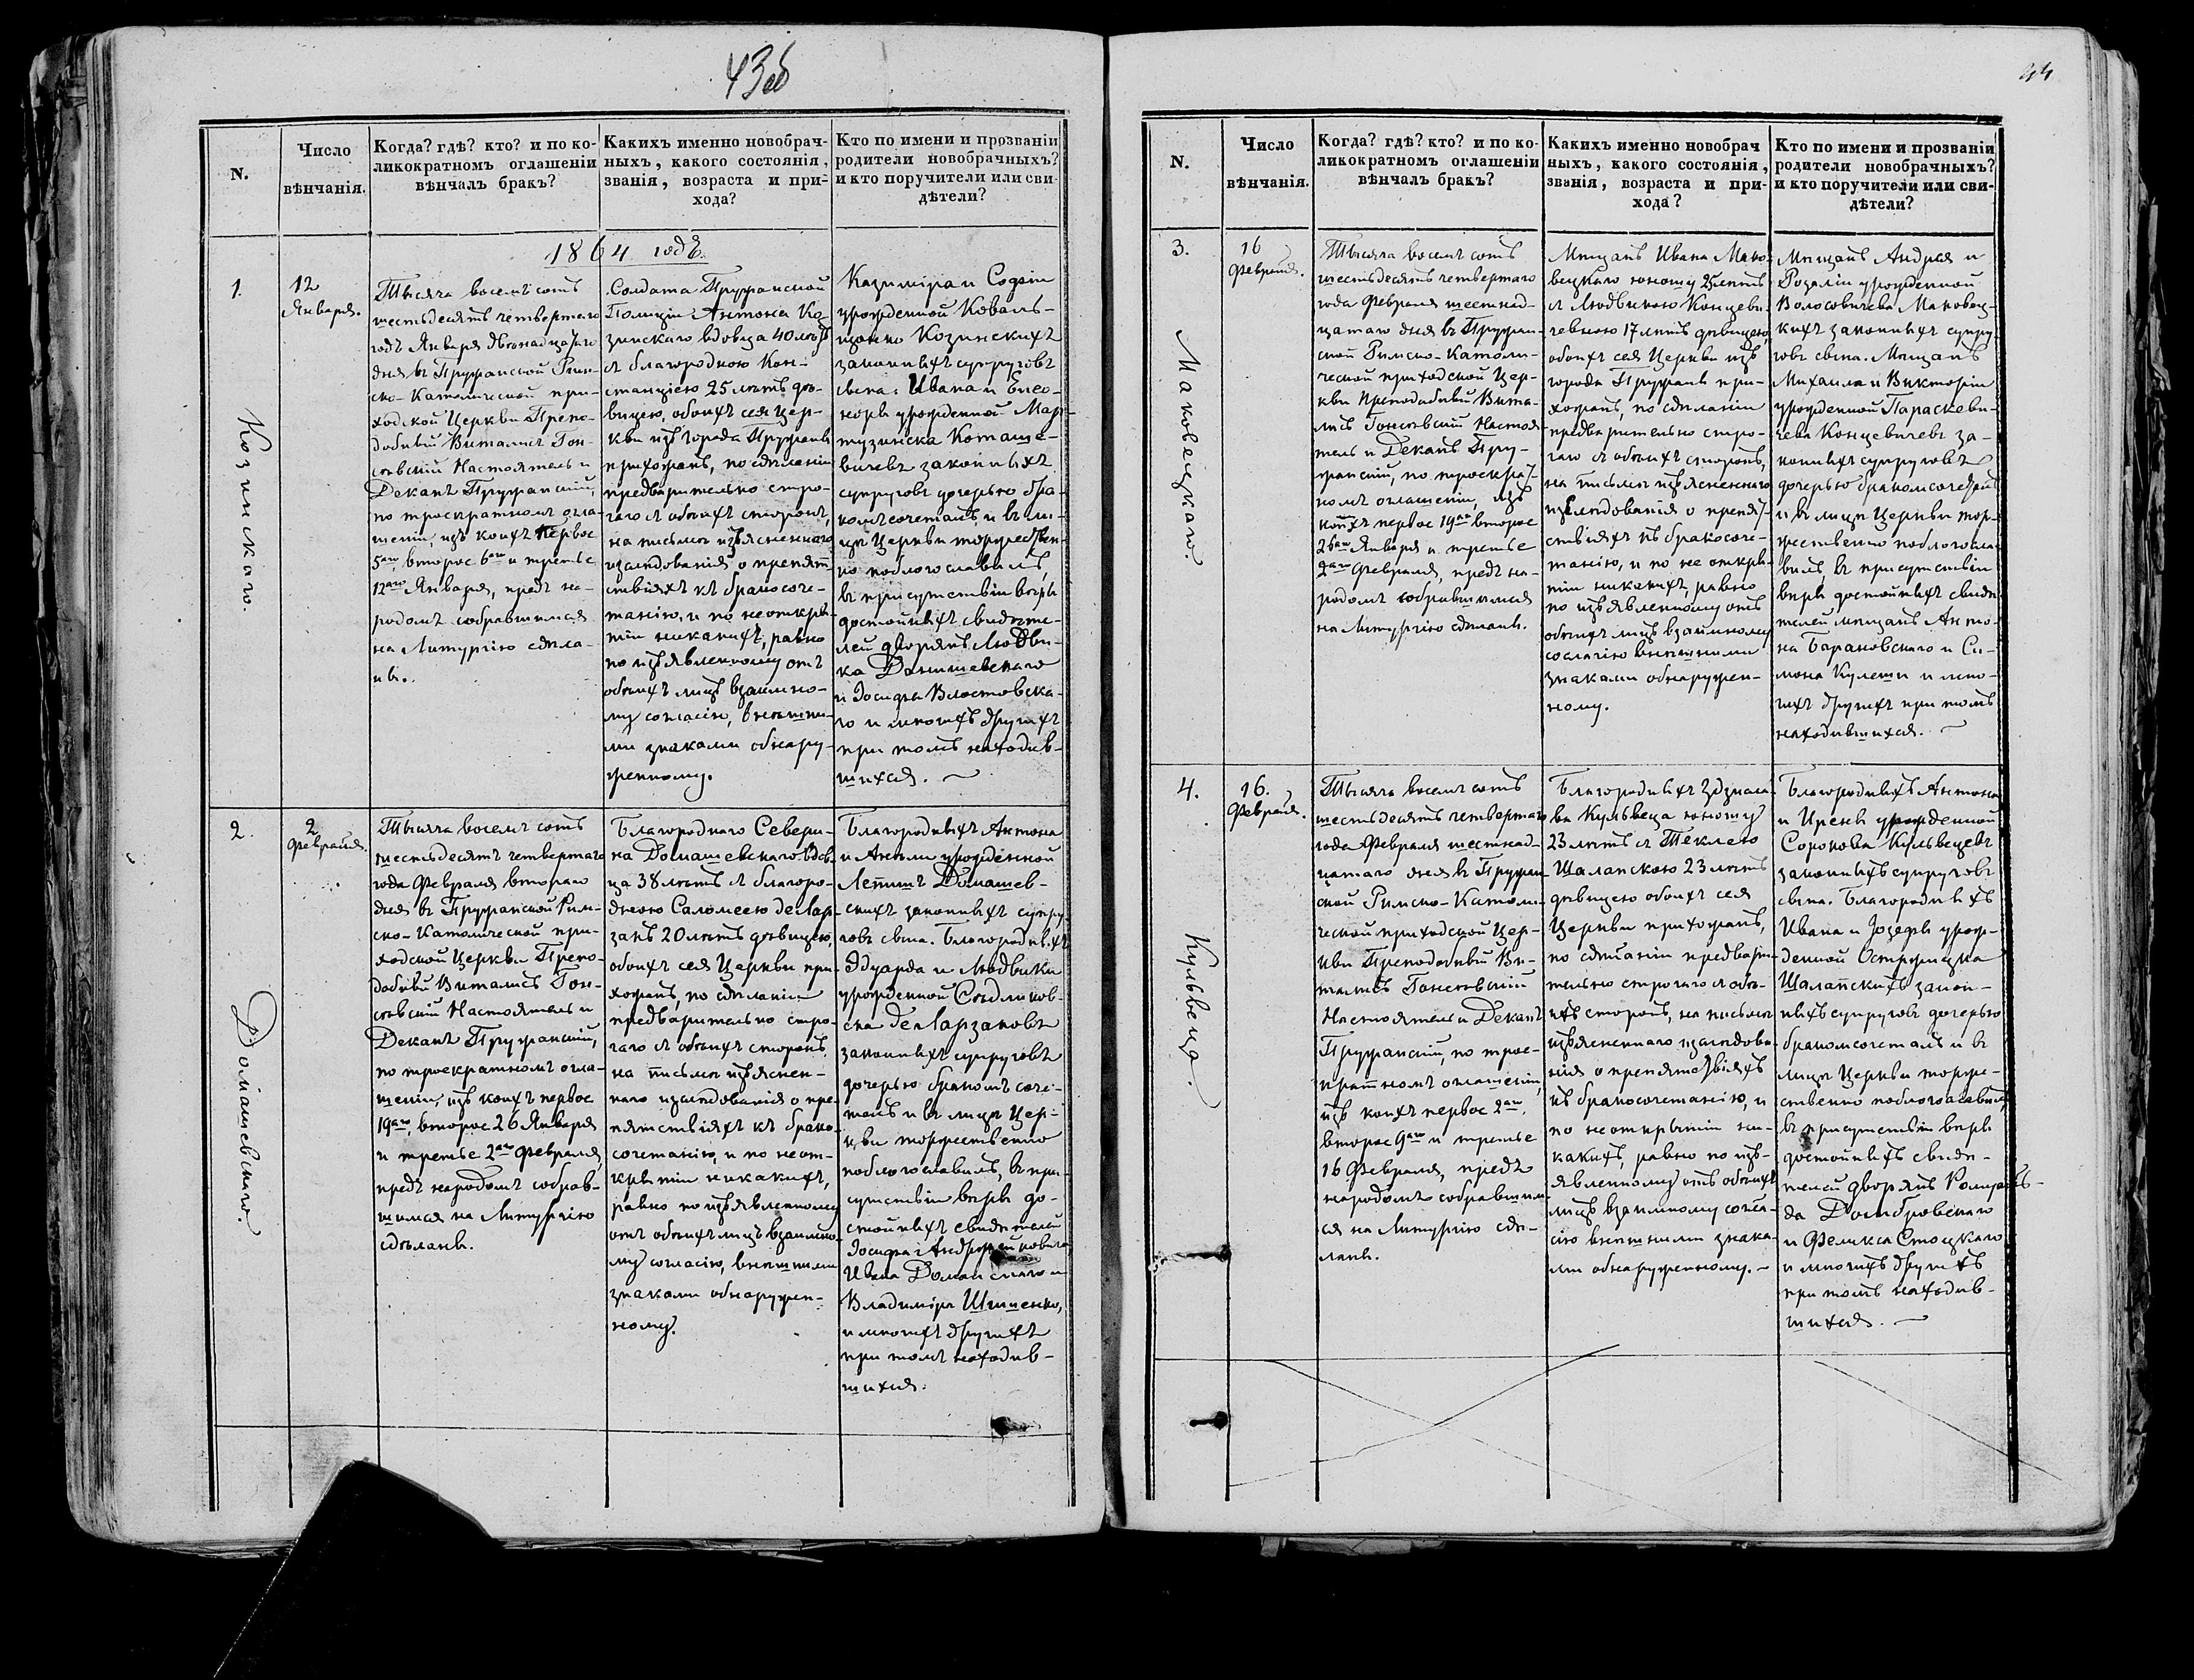 43об
N.
Число
вѣнчанія.
Когда? гдѣ? кто? и по ко-
ликократномъ оглашеніи
вѣнчалъ бракъ?
Какихъ именно новобрач-
ныхъ, какого состоянія,
званія, возраста и при-
хода?
Кто по имени и прозваніи
родители новобрачныхъ?
и кто поручители или сви-
дѣтели?
1864 годъ.
1.
Козинскаго.
12
Января.
Тысяча восемь сотъ
шестьдесятъ четвертаго
годъ Января двѣнадцатаго
дня въ Пружанской Рим-
ско-Католической при-
ходской Церкви Препо-
добный Виталисъ Гон-
совскій Настоятель и
Деканъ Пружанскій,
по троекратномъ огла-
шеніи, изъ коихъ первое
5го, второе 6го и третье
12аго Января, предъ на-
родомъ собравшимся
на Литургію сдѣла-
ны.
Солдата Пружанской
Полиціи Антона Ко-
зинскаго вдовца 40 лѣтъ
съ благородною Кон-
станціею 25 лѣтъ дѣ-
вицею, обоихъ сея Цер-
кви изъ города Пружанъ
прихожанъ, по сдѣланіи
предварительно стро-
гаго съ обоихъ сторонъ,
на письмѣ изъясненнаго
изслѣдованія о препят-
ствіяхъ къ бракосоче-
танію, и по неоткры-
тіи никакихъ, равно
по изъявленному отъ
обоихъ лицъ взаимно-
му согласію, внѣшни-
ми знаками обнару-
женному.
Казиміра и Софіи
урожденной Коваль-
цовно Козинскихъ
законныхъ супруговъ
сына. Ивана и Елео-
норы урожденной Мар-
тузинска Коташе-
вичевъ законныхъ
супруговъ дочерью бра-
комъ сочеталъ, и въ ли-
цѣ Церкви торжествен-
но поблогославилъ,
въ присутствіи вѣры
достойныхъ свидѣте-
лей дворянъ Людви-
ка Данишевскаго
и Іосифа Властовска-
го и многихъ другихъ
при томъ находив-
шихся.
2.
Домашевскаго.
2
Февраля.
Тысяча восемь сотъ
шестьдесятъ четвертаго
года Февраля втораго
дня въ Пружанской Рим-
ско-Католической при-
ходской Церкви Препо-
добный Виталисъ Гон-
совскій Настоятель и
Деканъ Пружанскій,
по троекратномъ огла-
шеніи, изъ коихъ первое
19го, второе 26 Января
и третье 2го Февраля,
предъ народомъ собрав-
шимся на Литургію
сдѣланы.
Благороднаго Севери-
на Домашевскаго вдов-
ца 38 лѣтъ съ благоро-
дною Саломеею де Лар-
занъ 20 лѣтъ дѣвицею,
обоихъ сея Церкви при-
хожанъ, по сдѣланіи
предварительно стро-
гаго съ обоихъ сторонъ,
на письмѣ изъяснен-
наго изслѣдованія о пре-
пятствіяхъ къ брако-
сочетанію, и по неот-
крытіи никакихъ,
равно по изъявленному
отъ обоихъ лицъ взаимно-
му согласію, внѣшними
знаками обнаружен-
ному.
Благородныхъ Антона
и Анели урожденной
Лепитъ Домашев-
скихъ законныхъ супру-
говъ сына. Благородныхъ
Эдуарда и Людвики
урожденной Сѣдликов-
ска де Ларзановъ
законныхъ супруговъ
дочерью бракомъ соче-
талъ и въ лицѣ Цер-
кви торжественно
поблогославилъ, въ при-
сутствіи вѣры до-
стойныхъ свидѣтелей
Іосифа
Ивана
Владиміра Шишенко,
и многихъ другихъ
при томъ находив-
шихся.
44
N.
Число
вѣнчанія.
Когда? гдѣ? кто? и по ко-
ликократномъ оглашеніи
вѣнчалъ бракъ?
Какихъ именно новобрач
ныхъ, какого состоянія,
званія, возраста и при-
хода?
Кто по имени и прозваніи
родители новобрачныхъ?
и кто поручители или сви-
дѣтели?
3.
Маковецкаго.
16
Февраля.
Тысяча восемь сотъ
шестьдесятъ четвертаго
года Февраля шестнад-
цатаго дня въ Пружан-
ской Римско-Католи-
ческой приходской Цер-
кви Преподобный Вита-
лисъ Гонсовскій Настоя-
тель и Деканъ Пру-
жанскій, по троекрат-
номъ оглашеніи, изъ
коихъ первое 19го второе
26го Января и третье
2го Февраля, предъ на-
родомъ собравшимся
на Литургію сдѣланы.
Мѣщанъ Ивана Мако-
вецкаго юношу 25 лѣтъ
съ Людвикою Концеви-
чевною 17 лѣтъ дѣвицею,
обоихъ сея Церкви изъ
города Пружанъ при-
хожанъ, по сдѣланіи
предварительно стро-
гаго съ обоихъ сторонъ,
на письмѣ изъясненнаго
изслѣдованія о препят-
ствіяхъ къ бракосоче-
танію, и по не откры-
тіи никакихъ, равно
по изъявленному отъ
обоихъ лицъ взаимному
согласію внѣшними
знаками обнаружен-
ному.
Мѣщанъ Андрея и
Розаліи урожденной
Волосовичева Маковец-
кихъ законныхъ супру-
говъ сына. Мѣщанъ
Михаила и Викторіи
урожденной Параскеви-
чева Концевичевъ за-
конныхъ супруговъ
дочерью бракомъ сочеталъ
и въ лицѣ Церкви тор-
жественно поблогосла-
вилъ, въ присутствіи
вѣры достойныхъ свидѣ-
телей мѣщанъ Анто-
на Барановскаго и Си-
мона Кулеши и мно-
гихъ другихъ при томъ
находившихся.
4.
Кульвеца.
16.
Февраля.
Тысяча восемь сотъ
шестьдесятъ четвертаго
года Февраля шестнад-
цатаго дня въ Пружан-
ской Римско-Католи-
ческой приходской Цер-
кви Преподобный Ви-
талисъ Гонсовскій
Настоятель и Деканъ
Пружанскій, по трое-
кратномъ оглашеніи,
изъ коихъ первое 2го,
второе 9го и третье
16 Февраля, предъ
народомъ собравшим-
ся на Литургію сдѣ-
ланы.
Благородныхъ Здзисла-
ва Кульвеца юношу
23 лѣтъ съ Теклею
Шаланскою 23 лѣтъ
дѣвицею обоихъ сея
Церкви прихожанъ,
по сдѣланіи предвари-
тельно строгаго съ обо-
ихъ сторонъ, на письмѣ
изъясненнаго изслѣдова-
нія о препятствіяхъ
къ бракосочетанію, и
по неоткрытіи ни-
какихъ, равно по изъ-
явленному отъ обоихъ
лицъ взаимному согла-
сію внѣшними знака-
ми обнаруженному.
Благородныхъ Антона
и Ирены урожденной
Сорокова Кульвецевъ
законныхъ супруговъ
сына. Благородныхъ
Ивана и Іозефы урож-
денной Остромецка
Шаланскихъ закон-
ныхъ супруговъ дочерью
бракомъ сочеталъ и въ
лицѣ Церкви торже-
ственно поблогославилъ,
въ присутствіи вѣры
достойныхъ свидѣ-
телей дворянъ
Домбровскаго
и Феликса Стоцкаго
и многихъ другихъ
при томъ находив-
шихся.